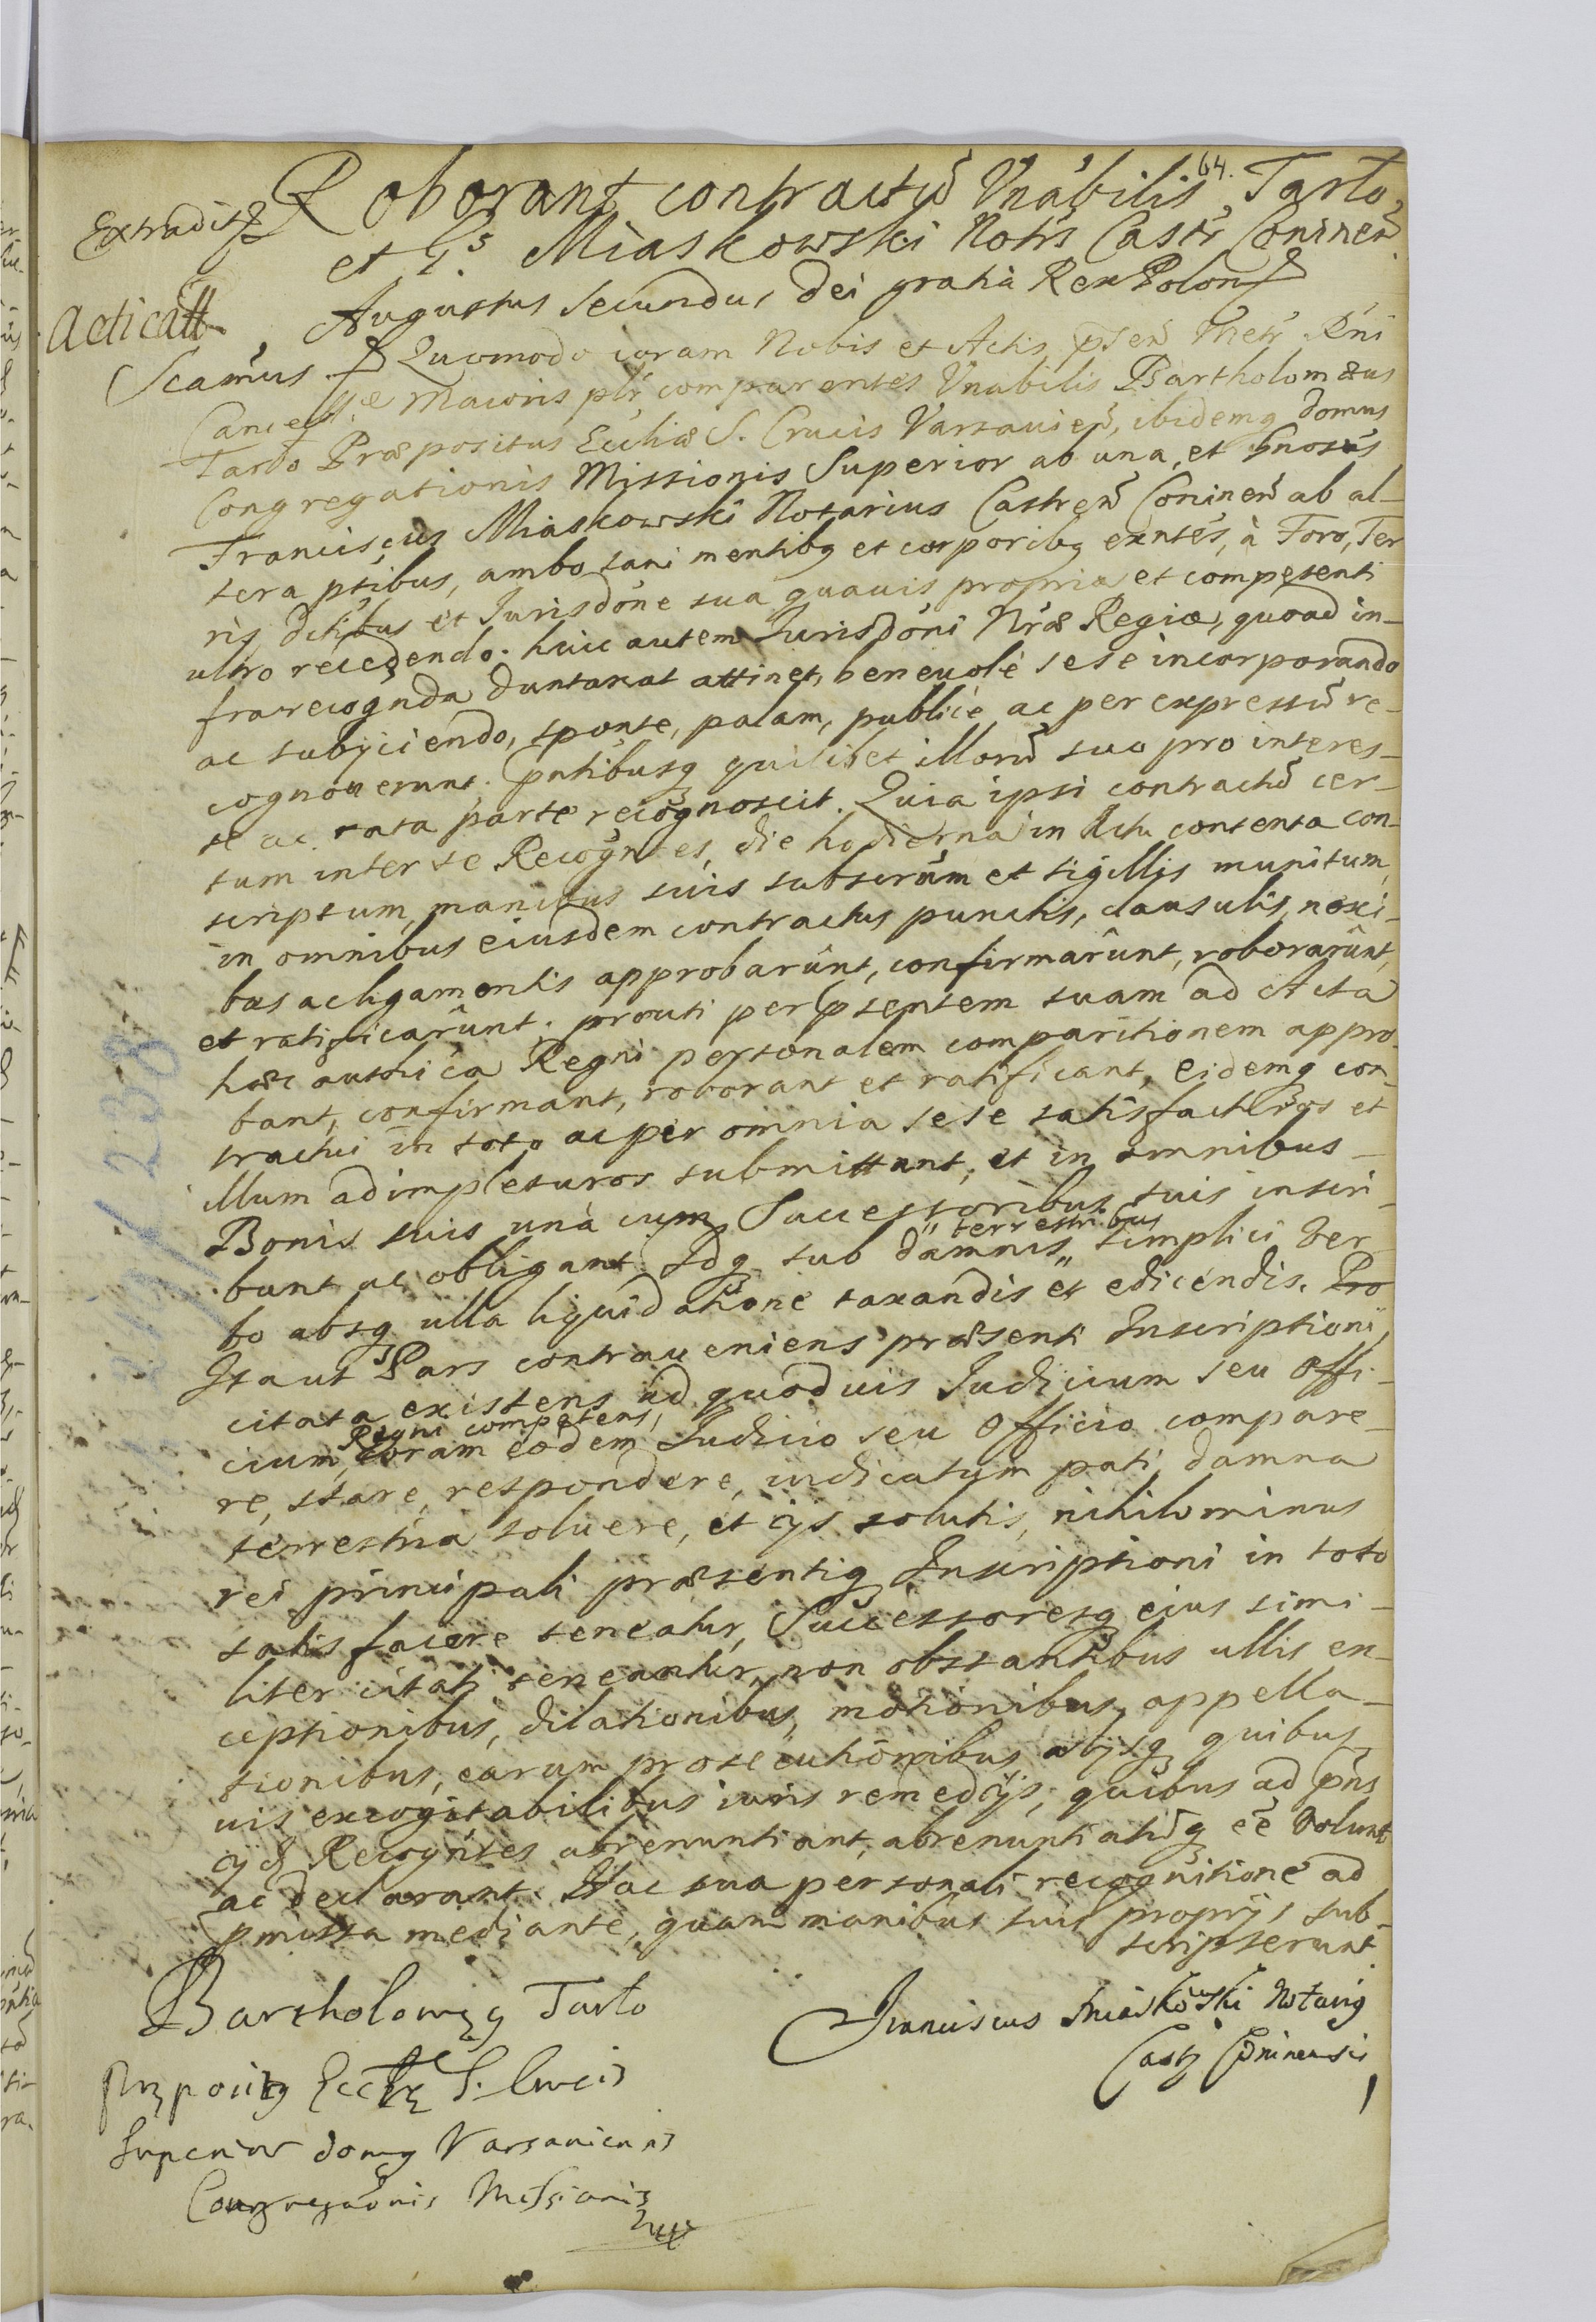 64.
Extradit
Roborant contractū Vnabilis Tarło,
et Gs Miaskowski Notrs Castr Coninen̄.
Acticatt
Augustus Secundus Dei gratia Rex Polon
Scamus. Quomodo coram Nobis et Actis p̄sen̄ Metr Rėni
Cancellae Maioris plr comparentes Vnabilis Bartholomæus
Tarło Præpositus Eccliæ S. Crucis Varsavien̄, ibidemq domus
Congregationis Missionis Superior ab una, et Gnosus
Franciscus Miaskowski Notarius Castren̄ Coninen̄ ab al-
tera ptibus, ambo sani mentibq et corporibq exntes, à Foro, Ter
ris dctibus et Jurisdōne sua quavis propria et competenti
ultro recedendo. huic autem Jurisdōni Nræ Regiæ, quoad in-
frarecognda duntaxat attinet, benevolè sese incorporando
ac subijciendo, sponte, palam, publicè ac per expressū re-
cognoverunt. Pntibusq quilibet illorū suo pro interes-
se ac rata parte recognoscit. Quia ipsi contractū cer-
tum inter se Recogntes, die hodierna in Actu contenta con-
scriptum, manibus suis subscrūm et sigillis munitum,
in omnibus eiusdem contractus punctis, clausulis, nexi-
bus ac ligamentis approbarûnt, confirmarûnt, roborarûnt,
et ratificarûnt. prouti per p̄sentem suam ad Acta
hæc authca Regni personalem comparitionem appro-
bant, confirmant, roborant et ratificant, eidemq con-
tractui in toto ac per omnia sese satisfacturos et
illum adimpleturos submittunt, et in omnibus
Bonis suis unà cum Successoribus suis inscri-
bunt ac obligant. Idq sub damnis terrestribus simplici ver
bo absq ulla liquidatione taxandis et edicendis. Pro
Itaut Pars contraveniens præsenti Inscriptioni,
citata existens ad quodvis Judicium seu Offi-
cium Regni competens, coram eodem Judicio seu Officio compare-
re, stare, respondere, iudicatum pati, damna
terrestria solvere, et ijs solutis, nihilominus
rei principali præsentiq Inscriptioni in toto
satisfacere teneatur, Successoresq eius simi-
liter citati teneantur, non obstantibus ullis ex-
ceptionibus, dilationibus, motionibus, appella-
tionibus, earum prosecutionibus alijsq quibus-
vis excogitabilibus iuris remedijs, quibus ad pns
ijd Recogntes abrenuntiant, abrenuntiatūq eē volunt
ac declarant. Hac sua personali recognitione ad
pmissa mediante, quam manibus suis proprijs sub-
scripserunt.
Bartholomęq Tarło
Pręposiq Ecclę S. Crucis
Superior domq Varsaviensis
Congregaōnis Missionis
Franciscus Miaskowski Notariq
Castr Coninensis